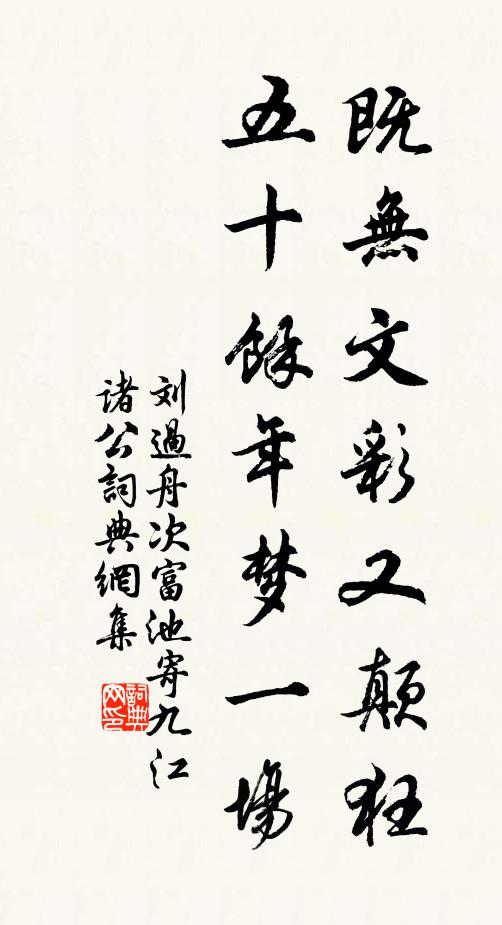 既無文彩又颠狂
五十餘年梦一場
刘過舟次富池寄九江
诸公詞典網集
詞典網印